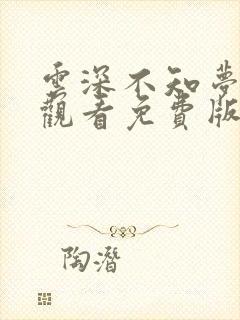 雲深不知夢
觀看免費版
陶潛